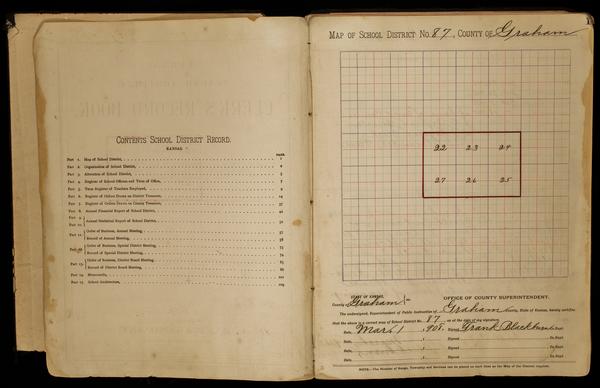 CONTENTS SCHOOL DISTRICT RECORD.
KANSAS
PAGE
Part 1. Map of School District, 1
Part 2. Organization of School District,
Part 3. Alteration of School District,
Part 4. Register of School Officers and Term of Office,
Part 5. Term Register of Teachers Employed,
Part 6. Register of Orders Drawn on District Treasurer,
Part 7. Register of Orders Drawn on County Treasurer,
Part 8. Annual Financial Report of School District,
Part 9.
Part 10. Annual Statistical Report of School District,
Part 11. Order of Business, Annual Meeting,
Record of Annual Meeting,
Order of Business, Special District Meeting,
Record of Special District Meeting,
Order of Business, District Board Meeting,
Record of District Board Meeting,
Part 14. Memoranda,
Part 15. School Architecture,
MAP OF SCHOOL DISTRICT NO. 87, COUNTY OF Graham
22 23 24
27 26 25
STATE OF KANSAS,
County of Graham ss. OFFICE OF COUNTY SUPERINTENDENT.
The undersigned, Superintendent of Public Instruction of Graham County, State of Kansas, hereby certifies
that the above is a correct map of School District No. 87 as of the date of my signature.
Date, Mar 1, 1908. Signed Frank Blackburn Co. Supt.
Date, Signed Co. Supt.
Date, Signed Co. Supt.
Date, Signed Co. Supt.
NOTE.—The Number of Range, Township and Sections can be placed on such lines as the Map of the District requires.